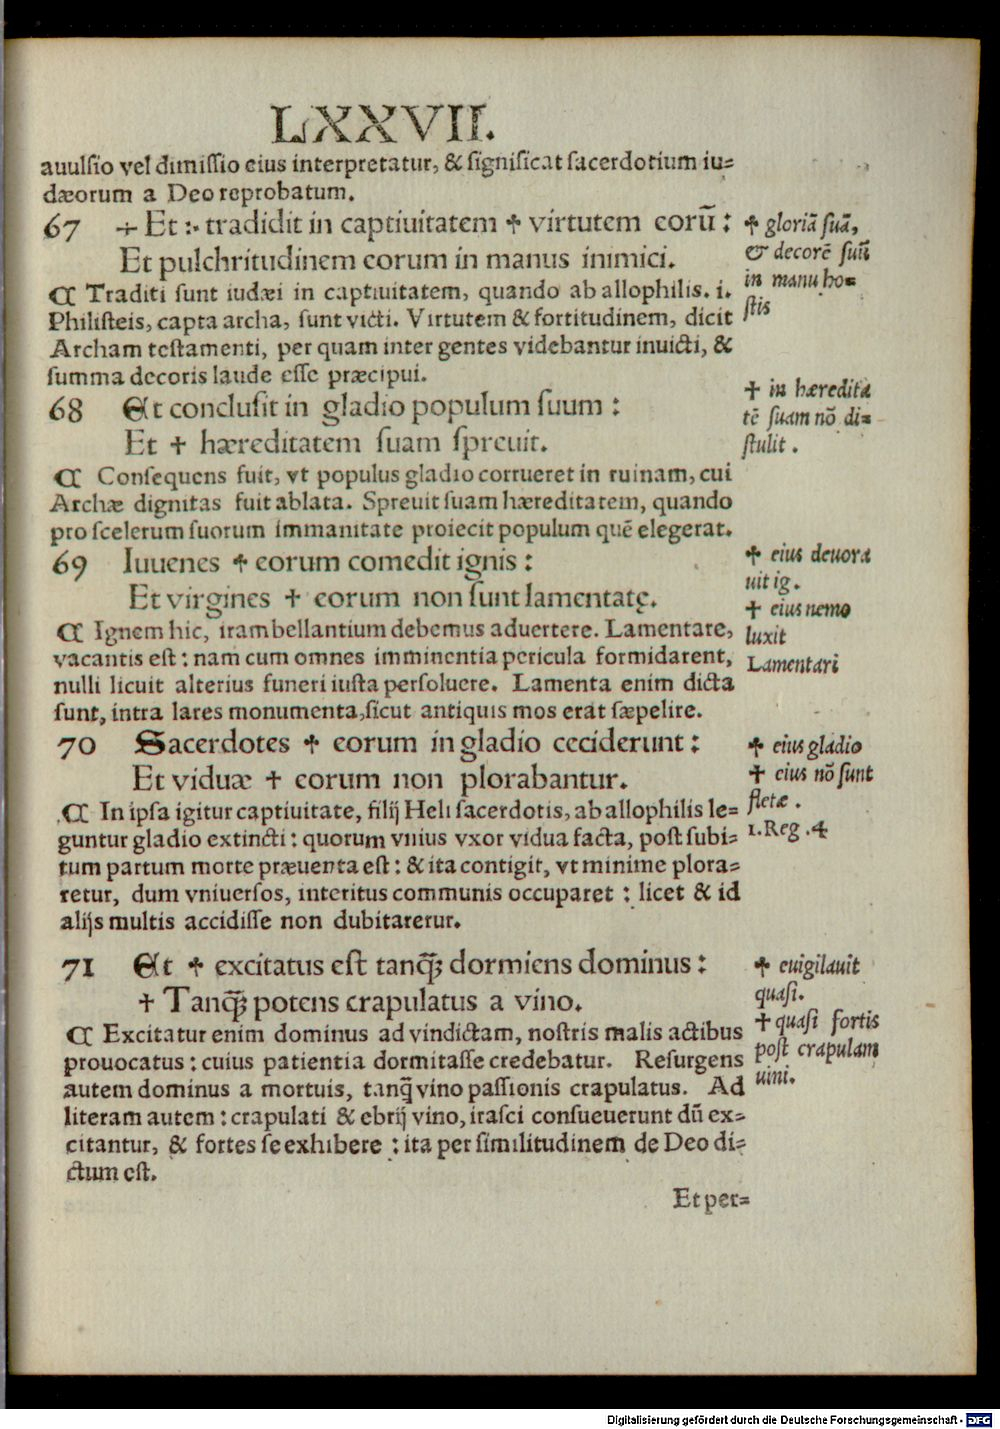 LXXVII.
auulſio vel dimiſſio eius interpretatur, & ſignificat ſacerdotium iu=
dæorum a Deo reprobatum.
67 ÷ Et :· tradidit in captiuitatem ✝ virtutem eorū :
Et pulchritudinem eorum in manus inimici.
✝ gloriã ſuã,
& decorē ſuū
in manu ho=
ſtis
¶ Traditi ſunt iudæi in captiuitatem, quando ab allophilis. i.
Philiſteis, capta archa, ſunt victi. Virtutem & fortitudinem, dicit
Archam teſtamenti, per quam inter gentes videbantur inuicti, &
ſumma decoris laude eſſe præcipui.
68 Et concluſit in gladio populum ſuum :
Et ✝ hæreditatem ſuam ſpreuit.
✝ in hæredita
tē ſuam nō di=
ſtulit .
¶ Conſequens fuit, vt populus gladio corrueret in ruinam, cui
Archæ dignitas fuit ablata. Spreuit ſuam hæreditatem, quando
pro ſcelerum ſuorum immanitate proiecit populum quē elegerat.
69 Iuuenes ✝ eorum comedit ignis :
Et virgines ✝ eorum non ſunt lamentatę.
✝ eius deuora
uit ig.
✝ eius nemo
luxit
Lamentari
¶ Ignem hic, iram bellantium debemus aduertere. Lamentare,
vacantis eſt : nam cum omnes imminentia pericula formidarent,
nulli licuit alterius funeri iuſta perſoluere. Lamenta enim dicta
ſunt, intra lares monumenta, ſicut antiquis mos erat ſæpelire.
70 Sacerdotes ✝ eorum in gladio ceciderunt :
Et viduæ ✝ eorum non plorabantur.
✝ eius gladio
✝ eius nō ſunt
fletæ .
1. Reg . 4
¶ In ipſa igitur captiuitate, filij Heli ſacerdotis, ab allophilis le=
guntur gladio extincti : quorum vnius vxor vidua facta, poſt ſubi=
tum partum morte præuenta eſt : & ita contigit, vt minime plora=
retur, dum vniuerſos, interitus communis occuparet : licet & id
alijs multis accidiſſe non dubitaretur.
71 Et ✝ excitatus eſt tanqꝫ dormiens dominus :
✝ Tanqꝫ potens crapulatus a vino.
✝ euigilauit
quaſi.
✝ quaſi fortis
poſt crapulam
uini.
¶ Excitatur enim dominus ad vindictam, noſtris malis actibus
prouocatus : cuius patientia dormitaſſe credebatur. Reſurgens
autem dominus a mortuis, tanq̃ vino paſſionis crapulatus. Ad
literam autem : crapulati & ebrij vino, iraſci conſueuerunt dū ex=
citantur, & fortes ſe exhibere : ita per ſimilitudinem de Deo di=
ctum eſt.
Et per=
Digitalisierung gefördert durch die Deutsche Forschungsgemeinschaft - DFG